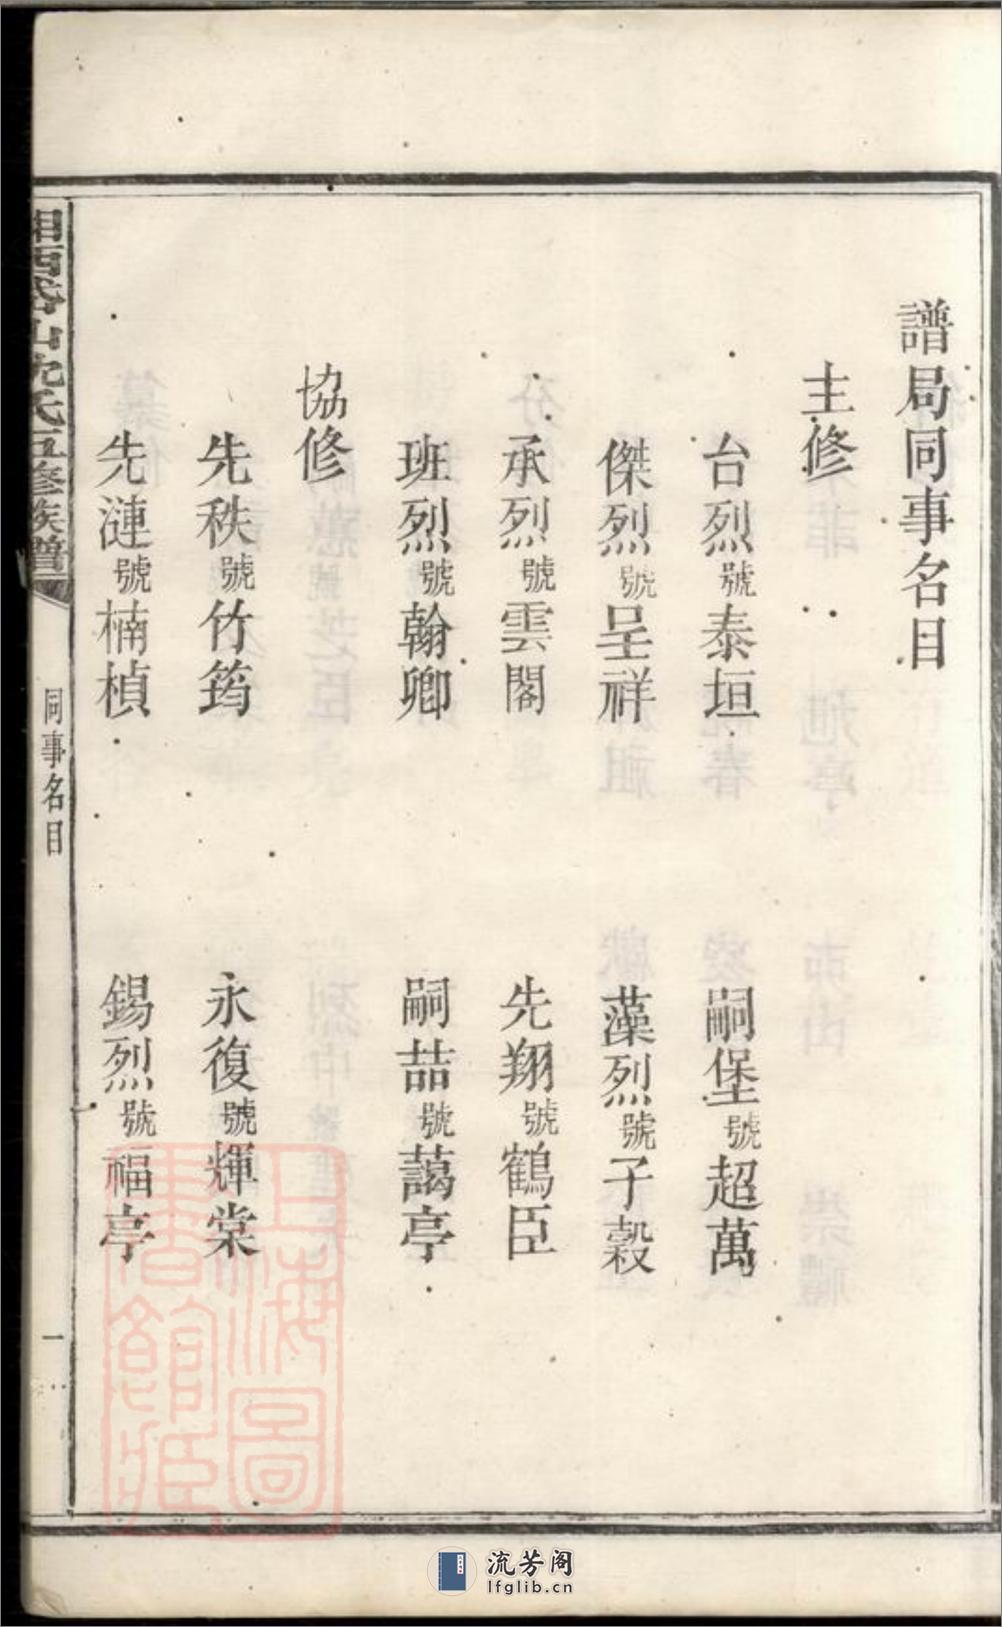 譜局同事名目
主修
台烈號泰垣 嗣堡號超萬
傑烈號呈祥 藻烈號子穀
承烈號雲閣 先翔號鶴臣
班烈號翰卿 嗣喆號藹亭
協修
先秩號竹筠 永復號輝棠
先漣號楠楨 錫烈號福亭
氏五修族譜
同事名目
一
上海圖書館藏
流芳阁
lfglib.cn